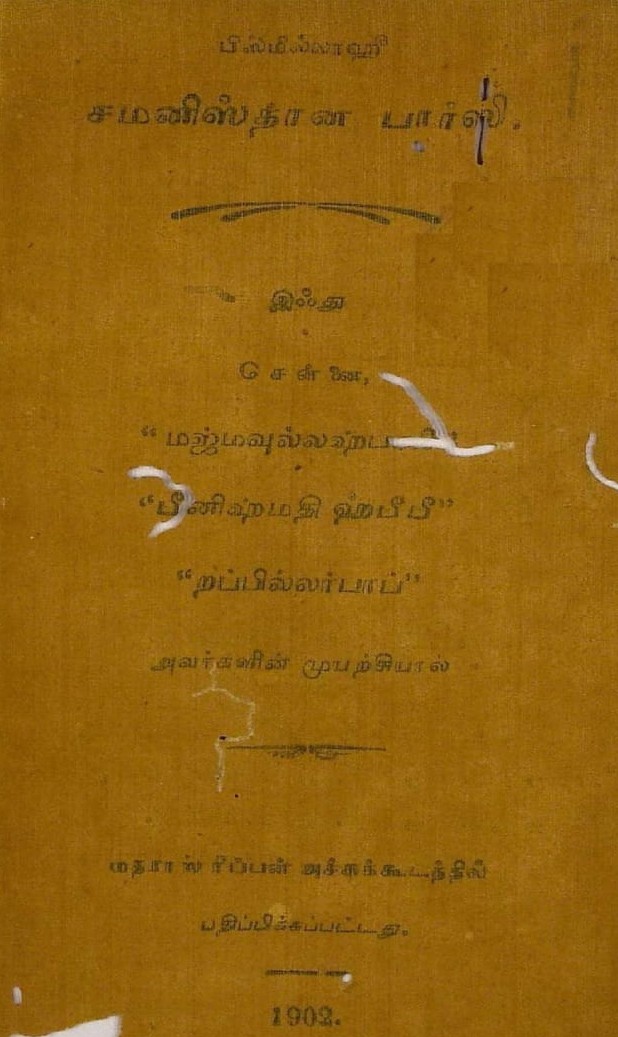 பிஸ்மில்லாஹி
சமனிஸ்தான பார்ஸி.
இஃது
சென்னை,
“மஜ்மவுல்லஹ்ப
“பீனிஹ்மதி ஹபீபீ”
“றப்பில்லர்பாப்”
அவர்களின் முயற்சியால்
மதராஸ் ரிப்பன் அச்சுக்கூடத்தில்
பதிப்பிக்கப்பட்டது.
1902.